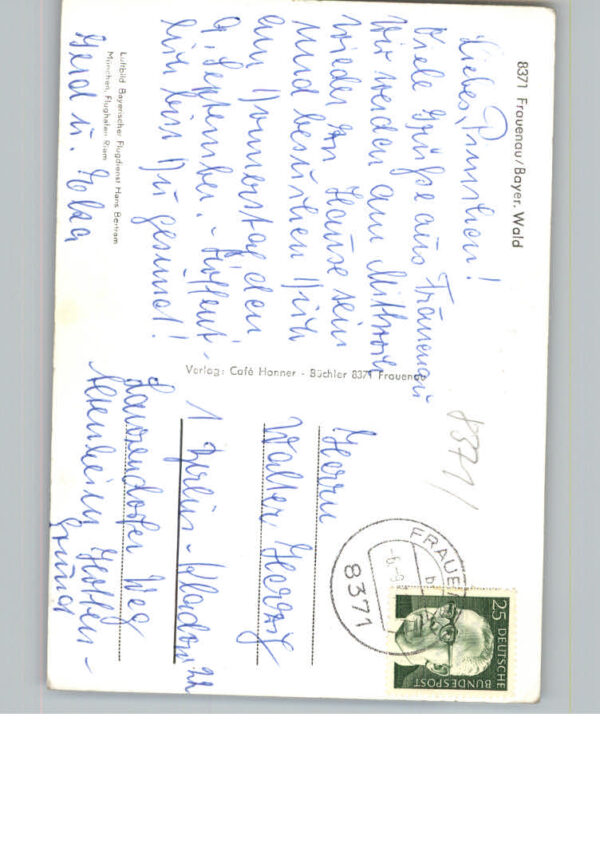 8371 Frauenau/Bayer. Wald
Liebes
Viele Grüße aus Frauenau
Wir werden am Mittwoch
wieder zu Hause sein
und besuchen Dich
am Donnerstag den
9. September. - Hoffent-
lich bist Du gesund!
Gerd u.
Luftbild Bayerischer Flugdienst Hans Bertram
München, Flughafen Riem
Verlag: Café Hanner - Büchler 8371 Frauenau
8371
Herrn
Walter
1 Berlin-
Weg
grund
FRAUE
8371
25
DEUTSCHE
BUNDESPOST